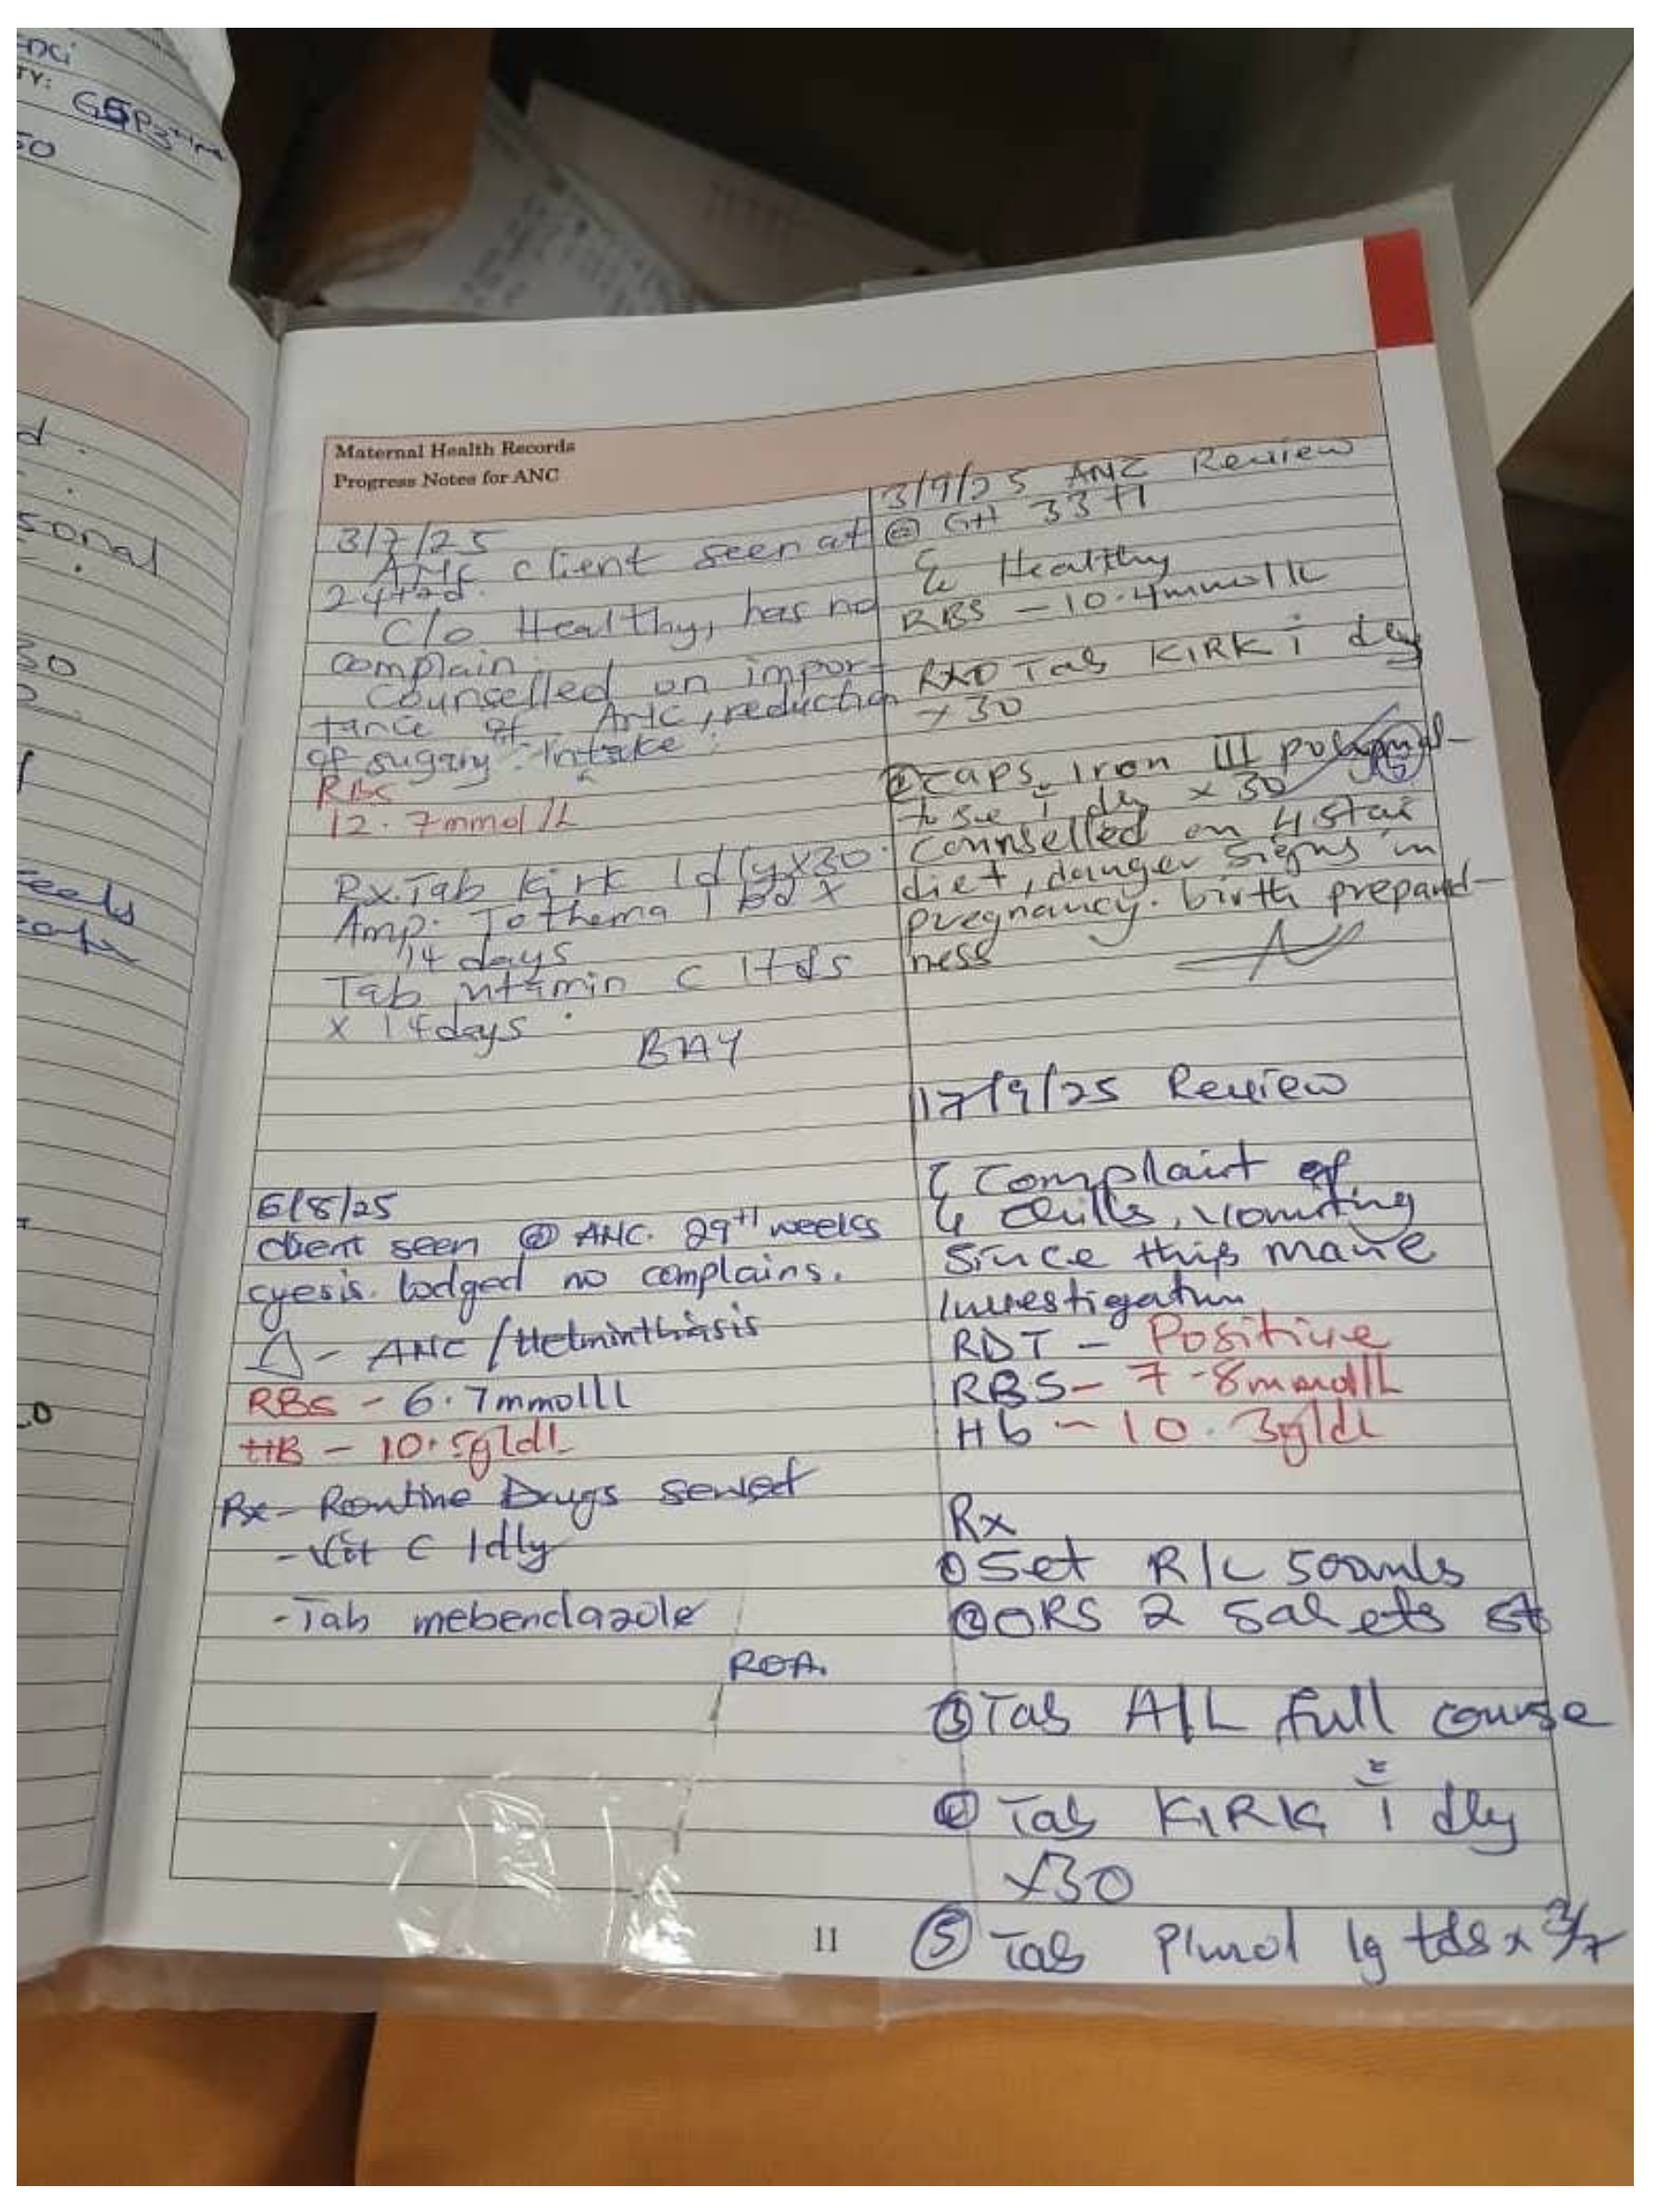 G5P3
Maternal Health Records
Progress Notes for ANC
3/7/25
ANC client seen at
24+2d.
C/o Healthy, has no
complain.
Counselled on impor-
tance of ANC, reduction
of sugary intake.
RBS
12.7mmol/L
Rx. Tab Kirk 1 dly x 30.
Amp. Tothema 1 bd x
14 days
Tab vitamin C 1 tds
x 14 days.
BAY
6/8/25
Client seen @ ANC. 29+1 weeks
cyesis. lodged no complains.
Δ - ANC / Helminthiasis
RBS - 6.7mmol/l
HB - 10.5g/dL
Rx - Routine Drugs served
- Vit C 1dly
- Tab mebendazole
ROA.
3/9/25 ANC Review
@ GA 33+1
Healthy
RBS - 10.4mmol/L
Rx ① Tab KIRK i dly
x 30
② caps. Iron III polymal-
tose i dly x 30
counselled on 4 star
diet, danger signs in
pregnancy. birth prepared-
ness
17/9/25 Review
Complaint of
chills, vomiting
since this mane
Investigatn
RDT - Positive
RBS - 7.8mmol/L
Hb - 10.3g/dL
Rx
① Set R/L 500mls
② ORS 2 Sahets st
③ Tab A/L full course
④ Tab KIRK i dly
x30
⑤ Tab P'mol 1g tds x 3/7
11